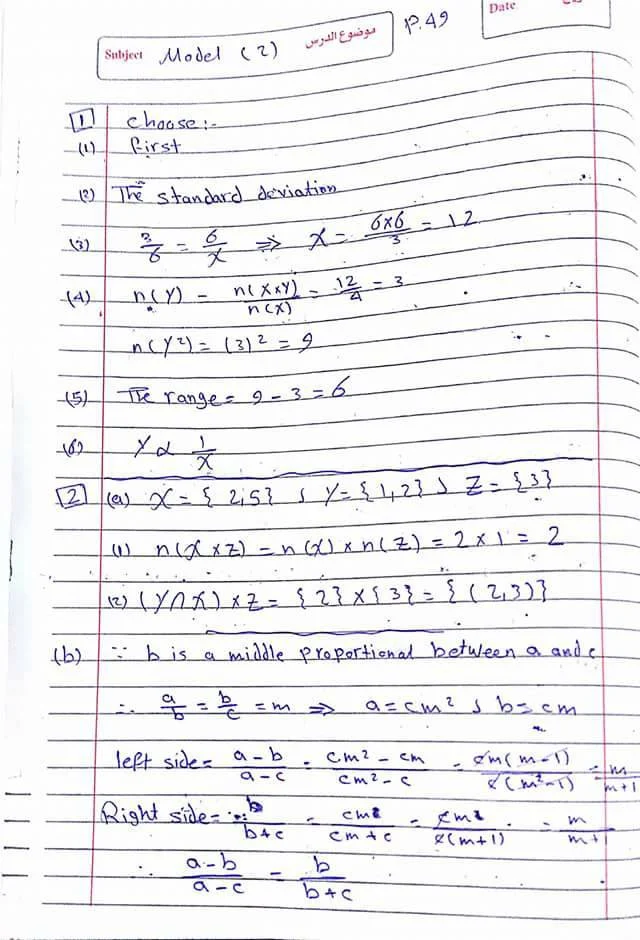 P.49
Date
Subject Model (2) موضوع الدرس
1 Choose:-
(1) first
(2) The standard deviation
(3) 3/6 = 6/x ⇒ x = 6×6/3 = 12
(4) n(Y) = n(X×Y)/n(X) = 12/4 = 3
n(Y²) = (3)² = 9
(5) The range = 9 - 3 = 6
(6) Y ∝ 1/x
2 (a) X = {2,5} , Y = {1,2} , Z = {3}
(1) n(X×Z) = n(X) × n(Z) = 2 × 1 = 2
(2) (Y∩X) × Z = {2} × {3} = {(2,3)}
(b) ∵ b is a middle proportional between a and c
∴ a/b = b/c = m ⇒ a = cm² , b = cm
left side = a-b/a-c = cm²-cm/cm²-c = cm(m-1)/c(m²-1) = m/m+1
Right side = b/b+c = cm/cm+c = cm/c(m+1) = m/m+1
∴ a-b/a-c = b/b+c